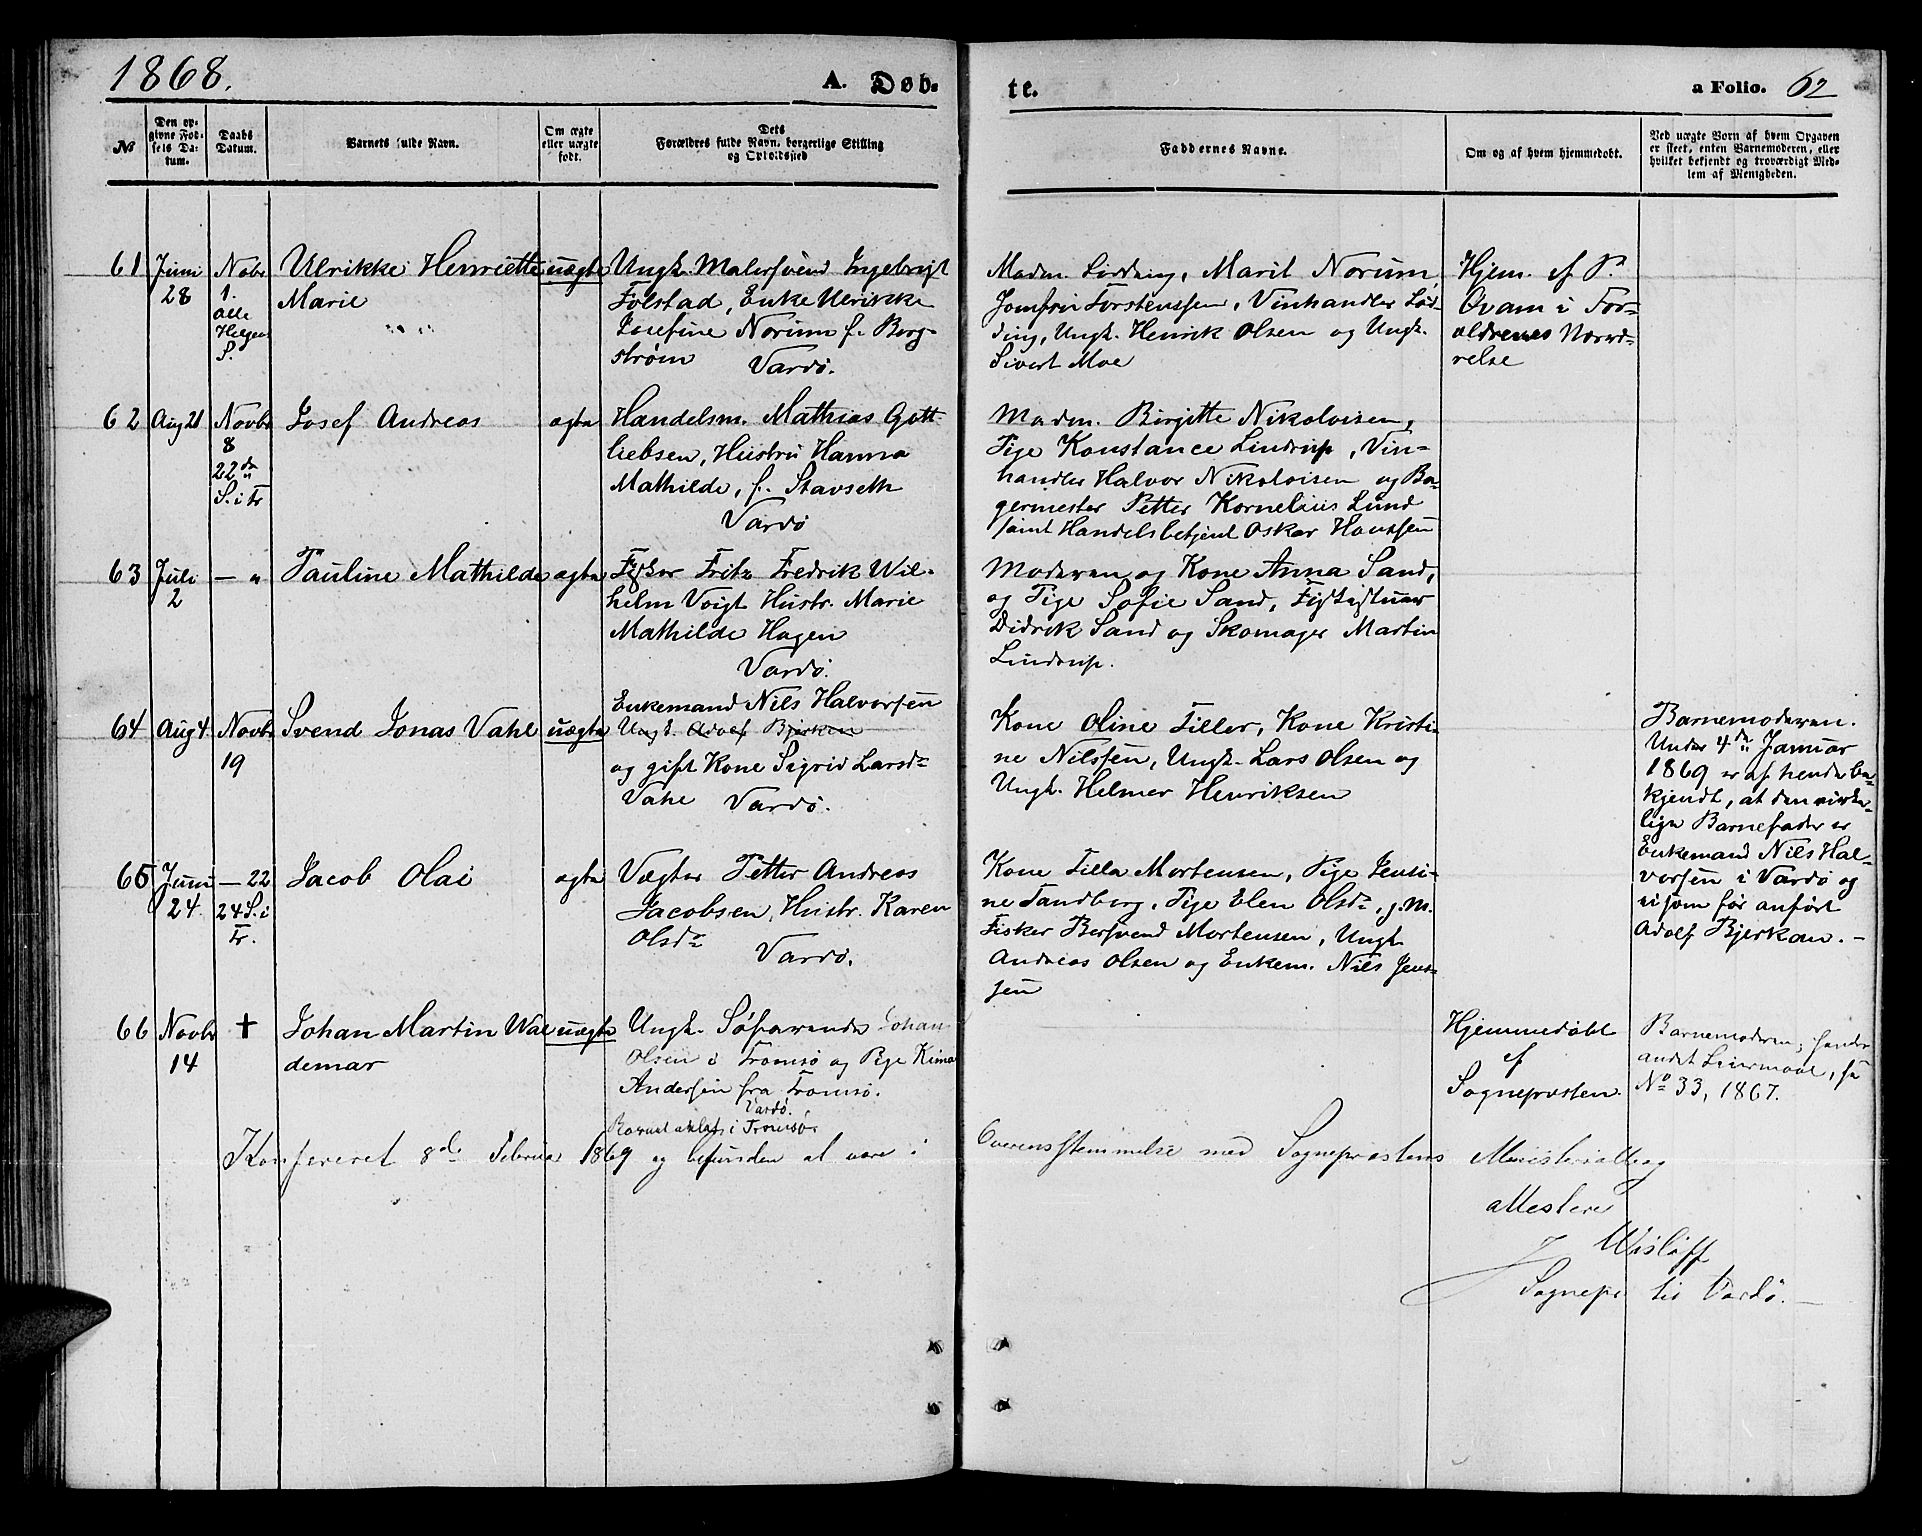 1868.
A. Døb-
te.
a Folio. 62
No
Den op-
givne Fød-
sels Da-
tum.
Daabs
Datum.
Barnets fulde Navn.
Om ægte
eller uægte
født.
Dets
Forældres fulde Navn, borgerlige Stilling
og Opholdssted
Faddernes Navne.
Om og af hvem hjemmedøbt.
Ved uægte Børn af hvem Opgaven
er skeet, enten Barnemoderen, eller
hvilket bekjendt og troværdigt Med-
lem af Menigheden.
61
Juni
28
Nobr
1.
Alle
Helgen
S.
Ulrikke Henriette
Marie
uægte
Ungk. Malersvend Ingebrigt
Folstad, Enke Ulrikke
Josefine Norum f. Berg-
strøm Vardø.
Madm. Lødding, Marit Norum,
Jomfru Torstenssen, Vinhandler Lød-
ding, Ungk. Henrik Olsen og Ungk.
Sivert Moe
Hjem. af P.
Qvam i For-
ældrenes Nærvæ-
relse
62
Aug 21
Novbr
8
22de
S. i Tr
Josef Andreas
ægte
Handelsm. Mathias Gott-
liebsen, Hustru Hanna
Mathilde, f. Stavseth
Vardø
Madm. Birgitte Nikolaisen,
Pige Konstance Lindrup, Vin-
handler Halvor Nikolaisen og Ba-
germester Petter Kornelius Lund
samt Handelsbetjent Oskar Hanssen
63
Juli
2
— "
Pauline Mathilde
ægte
Fisker Fritz Fredrik Wil-
helm Voigt Hustr. Marie
Mathilde Hagen
Vardø.
Moderen og Kone Anna Sand,
og Pige Sofie Sand,
Didrik Sand og Skomager Martin
Lindrup.
64
Aug 4
Novbr
19
Svend Jonas Vahl
uægte
Enkemand Nils Halvorsen
Ungk. Adolf Bjerken
og gift Kone Sigrid Larsdr
Vahl Vardø.
Kone Oline Tiller, Kone Kristi-
ne Nilssen, Ungk. Lars Olsen og
Ungk. Helmer Henriksen
Barnemoderen.
Under 4de Januar
1869 er af hende be-
kjendt, at den virke-
lige Barnefader er
Enkemand Nils Hal-
vorsen i Vardø og
ei som før anført
Adolf Bjerkan. —
65
Juni
24
— 22
24 S. i
Tr.
Jacob Olai
ægte
Vægter Petter Andreas
Jacobsen, Hustr. Karen
Olsdr
Vardø.
Kone Tilla Mortensen, Pige Jensi-
ne Tandberg, Pige Elen Olsdr, g. M.
Fisker Bersvend Mortensen, Ungk
Andreas Olsen og Enkem. Nils Jens-
sen
66
Novbr
14
+
Johan Martin Wal
demar
uægte
Ungk. Søfarende Johan
Olsen i Tromsø og Pige Kima
Andersen fra Tromsø.
Vardø.
Barnet avlet i Tromsø.
Hjemmedøbt
af
Sognepræsten.
Barnemoderen, hendes
andet Leiermaal, se
No 33, 1867.
Konfereret 8de Februar 1869 og befunden at være i
Overensstemmelse med Sognepræstens Ministerialbog
attesterer
Wisløff
Sognepr til Vardø. —